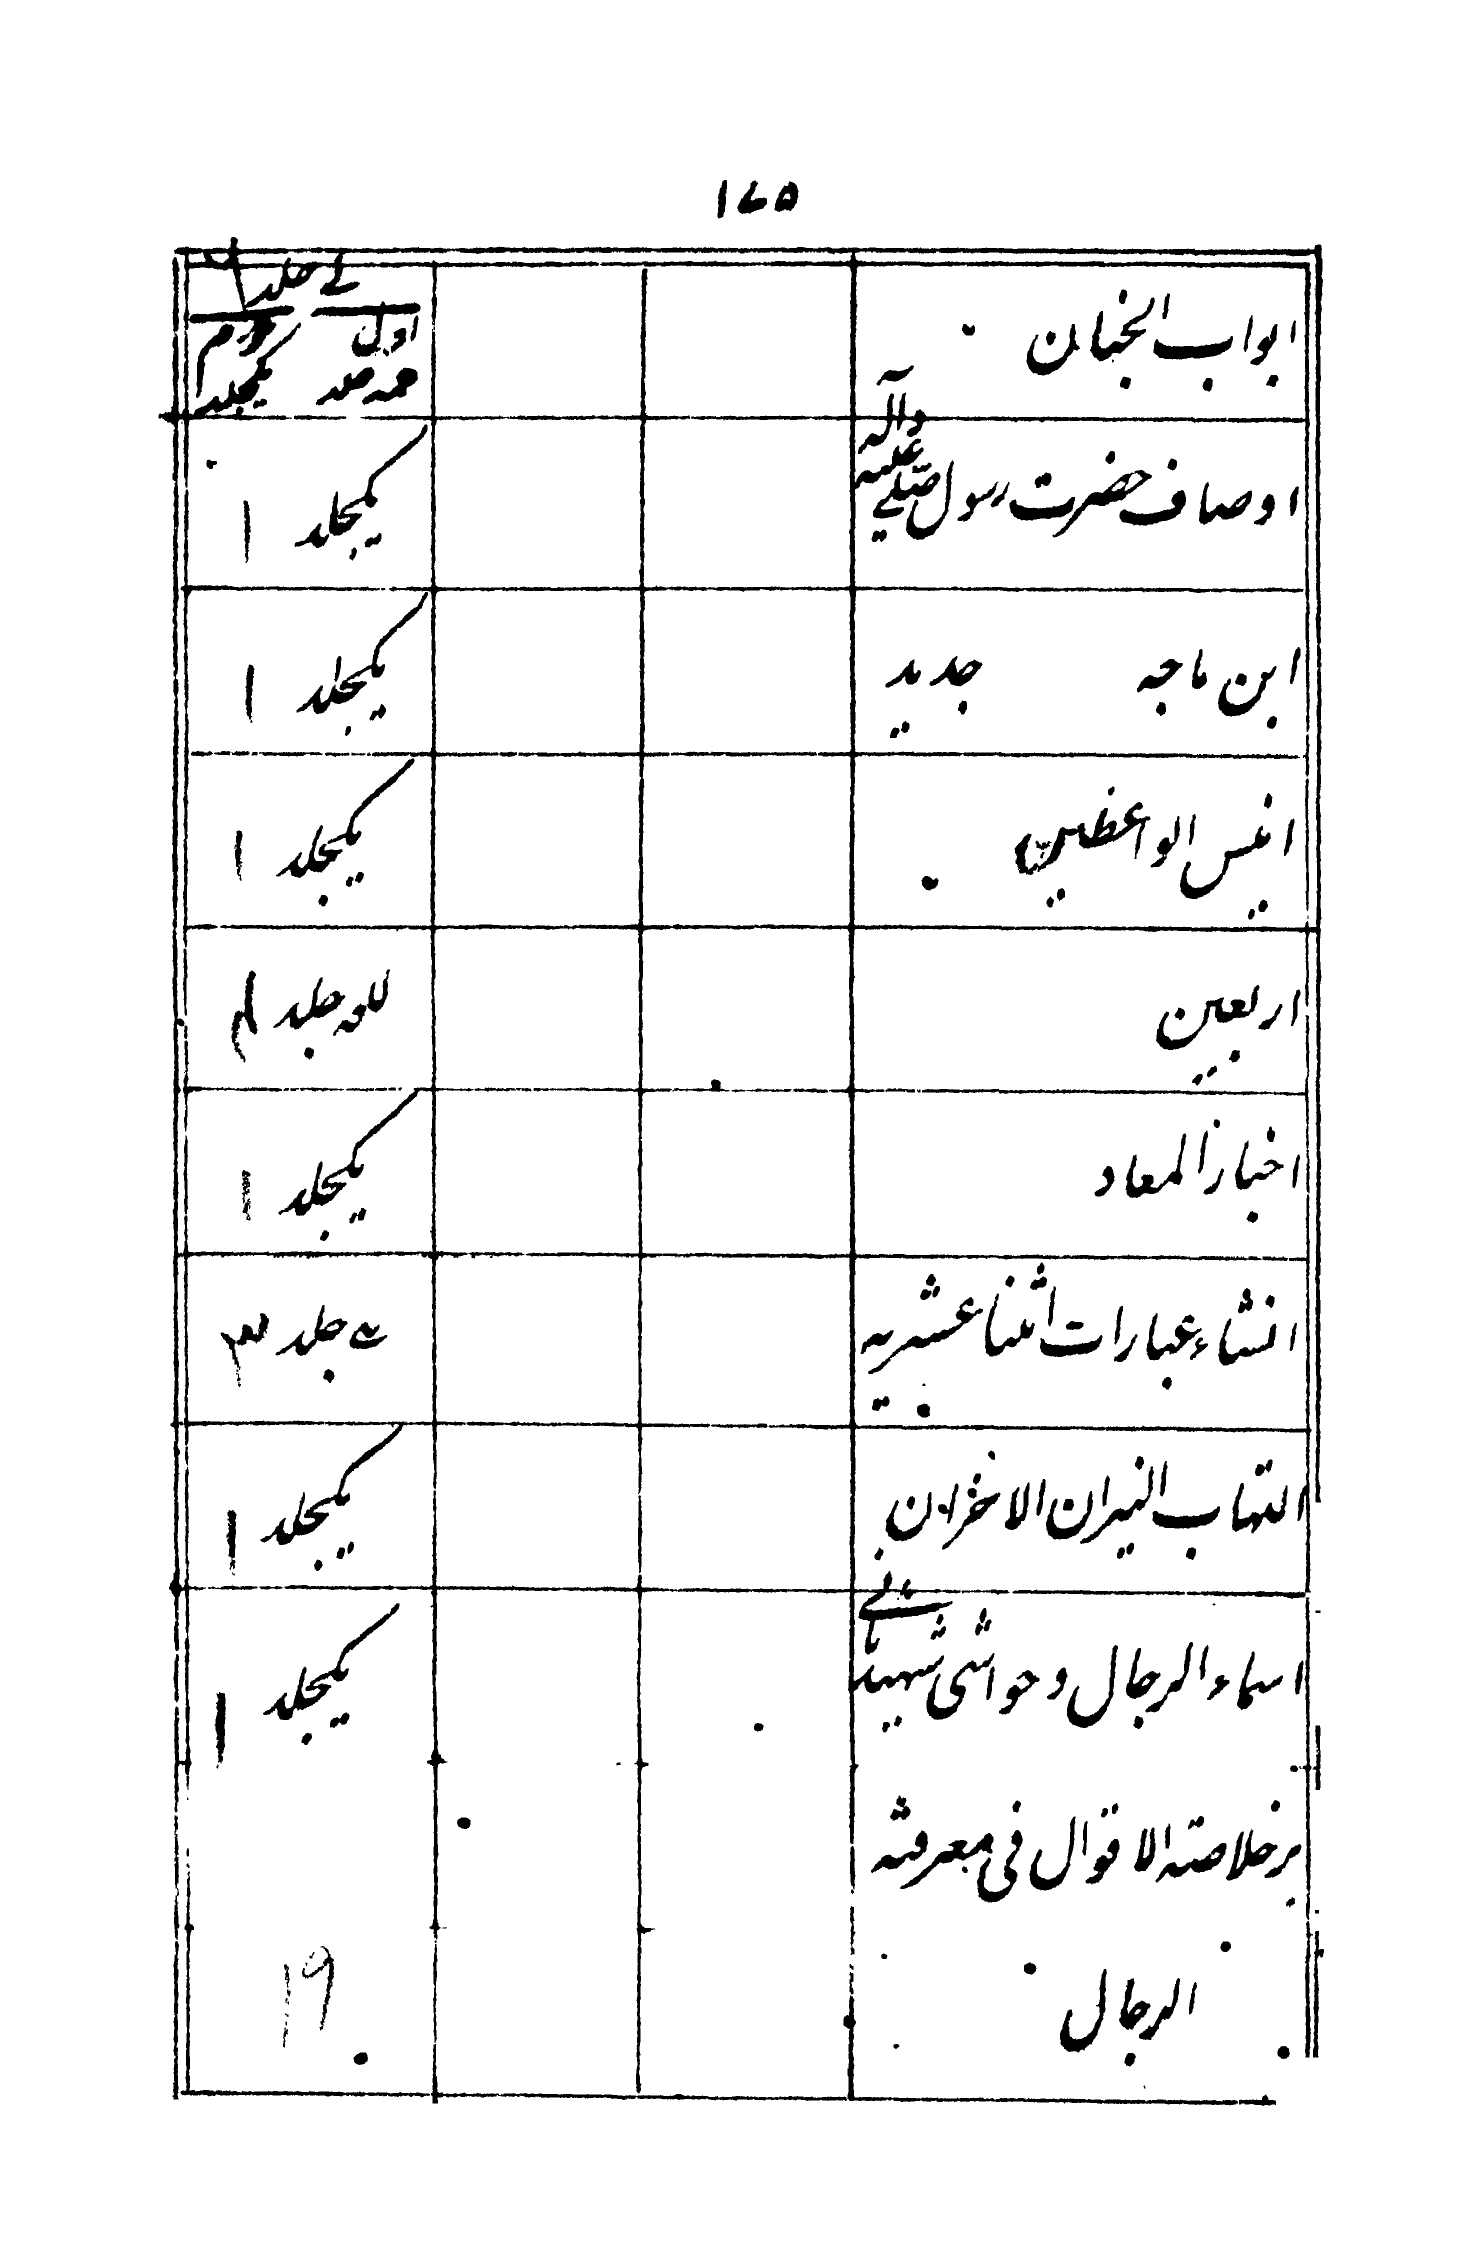 ۱۷۵
ابواب الجنان
جلد
اول دوم
یکجلد
اوصاف حضرت رسول صلی علیه وآله یکجلد ۱
ابن ماجه جدید یکجلد ۱
انیس الواعظین یکجلد ۱
اربعین جلد ۴
اخبار المعاد یکجلد ۱
انشاء عبارات اثنا عشریه جلد ۳
التهاب النیران الاخزان یکجلد ۱
اسماء الرجال و حواشی شهید ثانی یکجلد ۱
بر خلاصته الاقوال فی معرفته
الرجال ۱۹